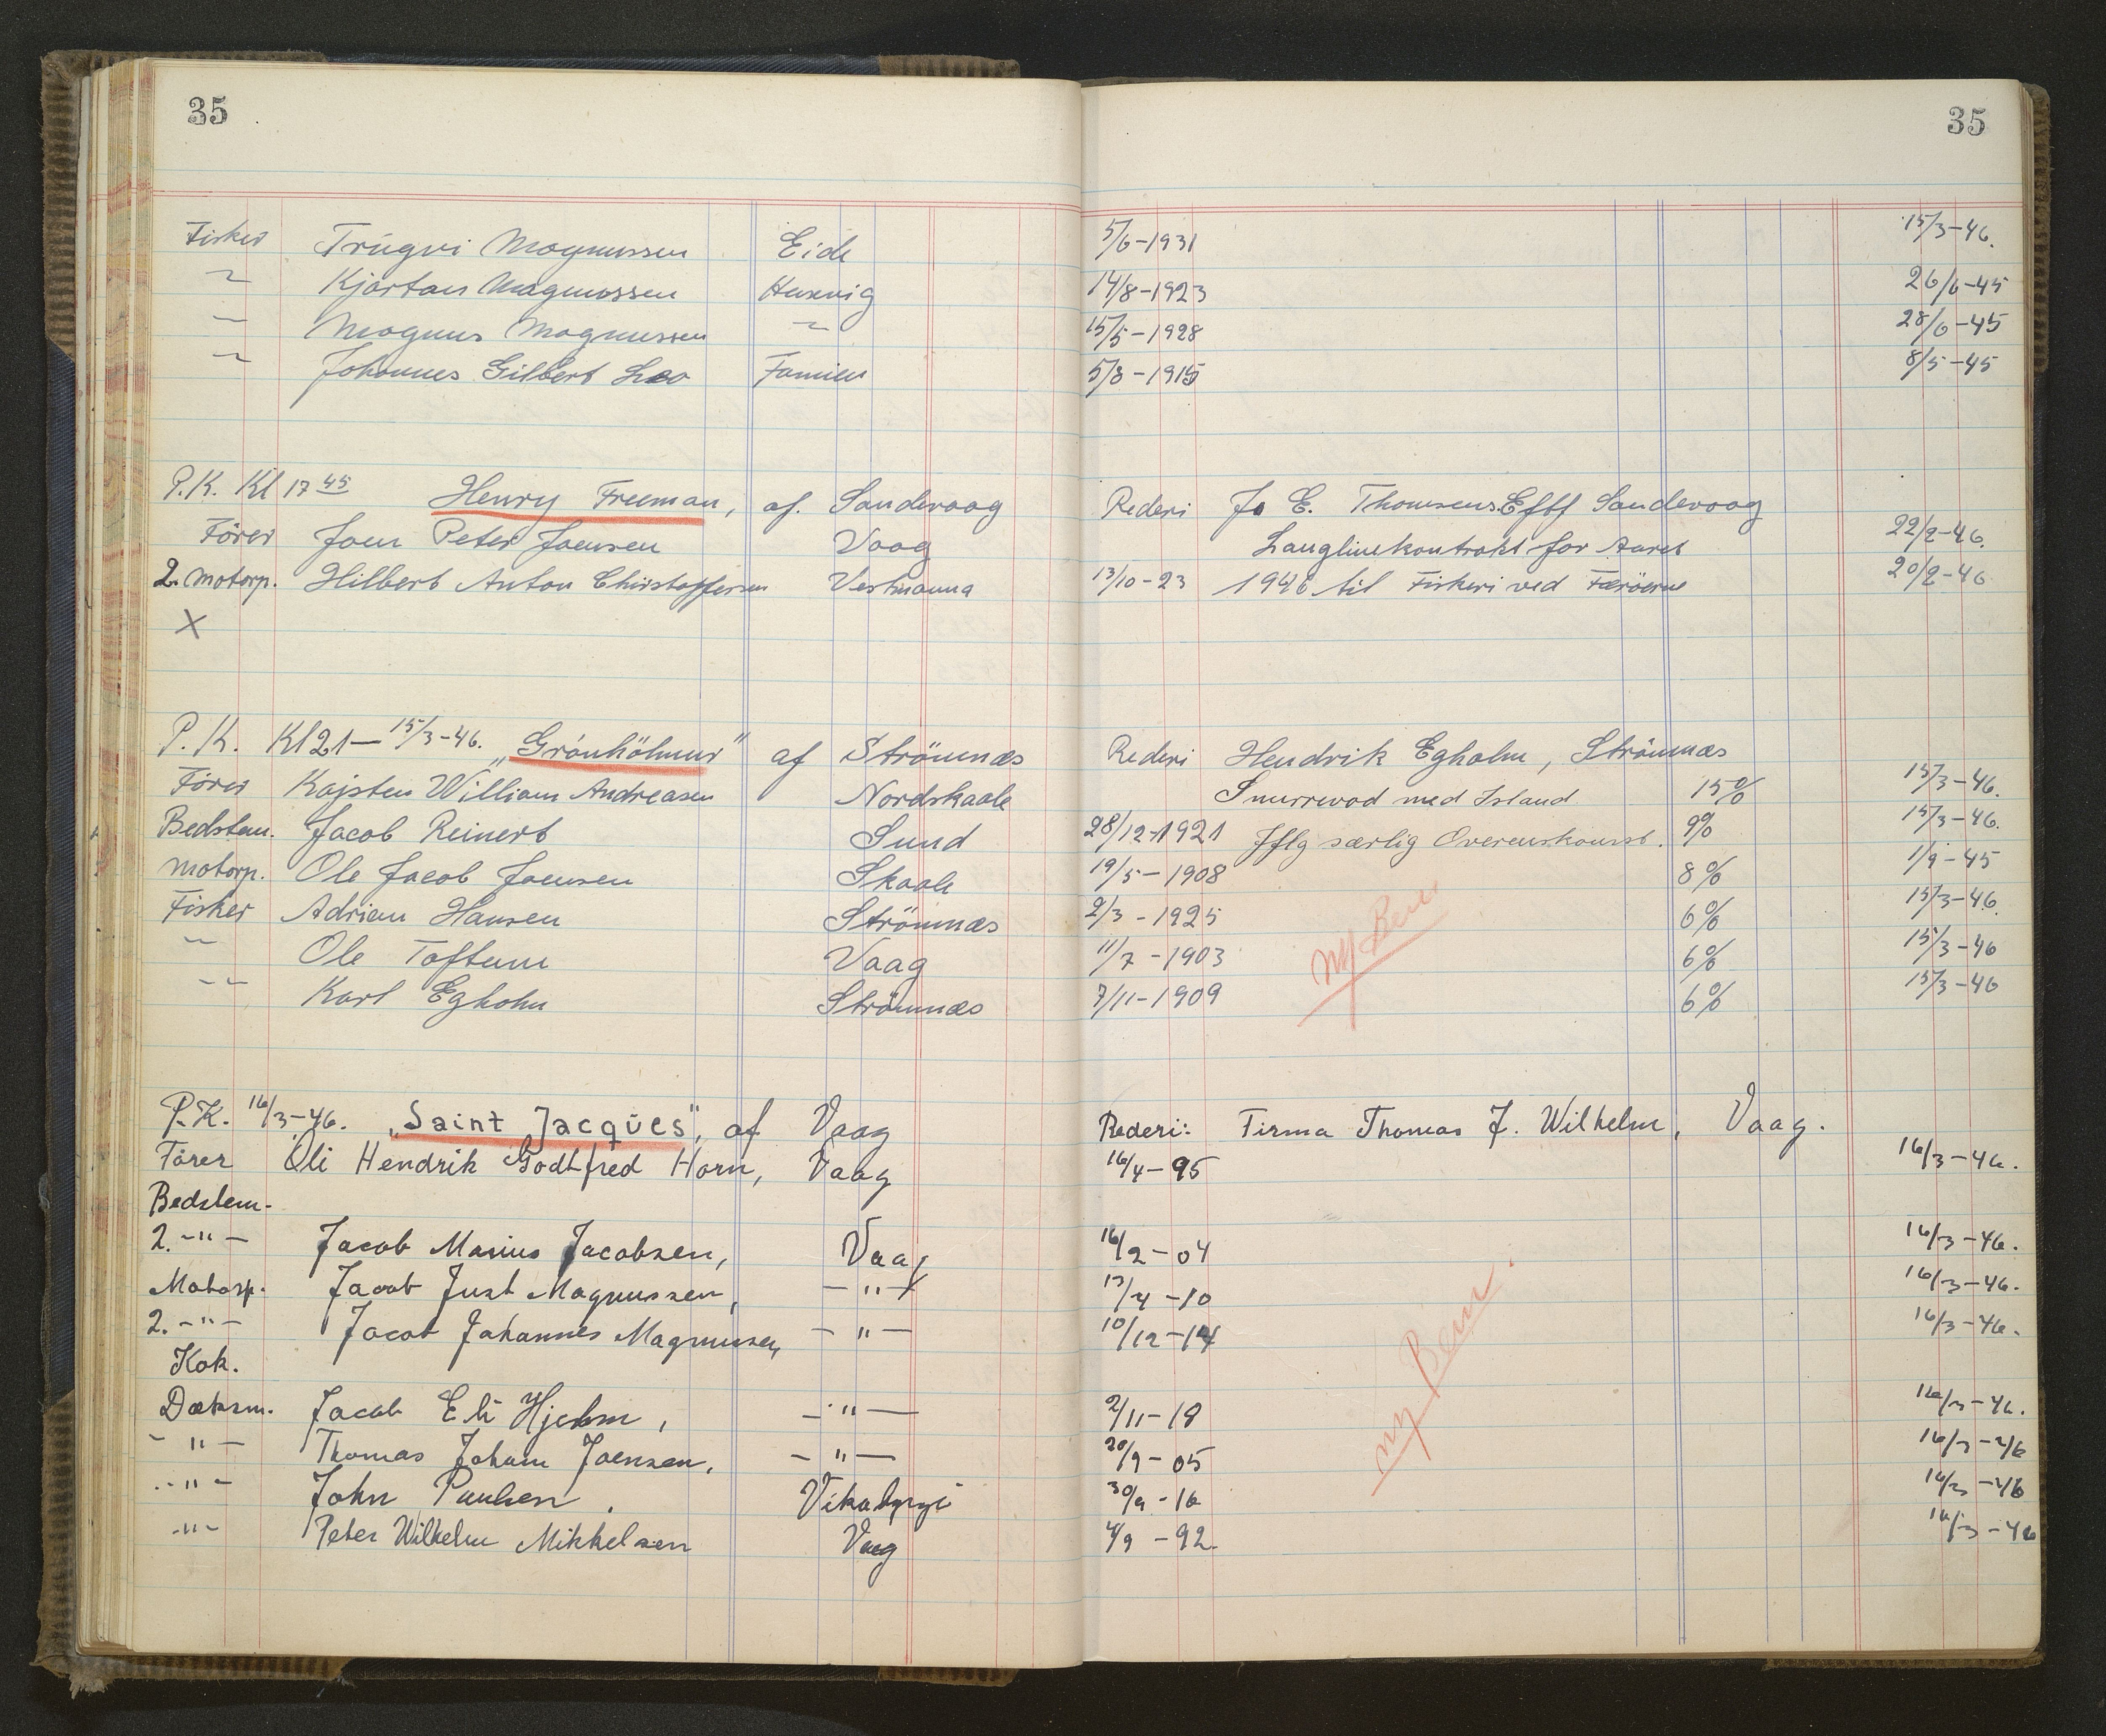 35 35
Fisker Trúgvi Magnussen Eide 5/6-1931 15/3-46.
~ Kjartan Magnussen Husevig 14/8-1923 26/6-45
~ Magnus Magnussen ~ 15/5-1928 28/6-45
~ Johannes Gilbert Leo Famien 5/8-1915 8/5-45
P.K. Kl 17 45 Henry Freeman, af. Sandevaag Rederi J. E. Thomsens Eftf Sandevaag
Förer Joen Peter Joensen Vaag Langlinekontrakt for Aaret 22/2-46.
2. Motorp. Hilbert Anton Christoffersen Vestmanna 13/10-23 1946 til Fiskeri ved Færöerne 20/2-46
X
P. K. Kl 21 — 15/3-46. „Grönhólmur" af Strömnæs Rederi Hendrik Egholm, Strömnæs
Förer Kajsten William Andreasen Nordskaale Snurrevod med Island 15% 15/3-46.
Bedstem. Jacob Reinert Sund 28/12-1921 Jflg særlig Overenskomst. 9% 15/3-46.
Motorp. Ole Jacob Joensen Skaale 19/5-1908 8% 1/9-45
Fisker Adrian Hansen Strömnæs 2/3-1925 6% 15/3-46.
~ Ole Toftum Vaag 11/7-1903 6% 15/3-46
~ Karl Egholm Strömnæs 7/11-1909 6% 15/3-46
ny Bem
P.K. 16/3-46. „Saint Jacques", af Vaag Rederi: Firma Thomas J. Wilhelm, Vaag.
Förer Oli Hendrik Godtfred Horn, Vaag 16/4-95 16/3-46.
Bedstem-
2. -"- Jacob Marius Jacobsen, Vaag 16/2-04 16/3-46.
Motorp. Jacob Just Magnussen, -"- 13/4-10 16/3-46.
2. -"- Jacob Johannes Magnussen -"- 10/12-14 16/3-46.
Kok.
Dæksm. Jacob Eli Hjelm, -"- 2/11-18 16/3-46.
-"- Thomas Joham Joensen, -"- 20/9-05 16/3-46
-"- John Paulsen, Vikabyrgi 30/9-16 16/3-46
-"- Peter Wilhelm Mikkelsen Vaag 4/9-92 16/3-46
ny Bem.